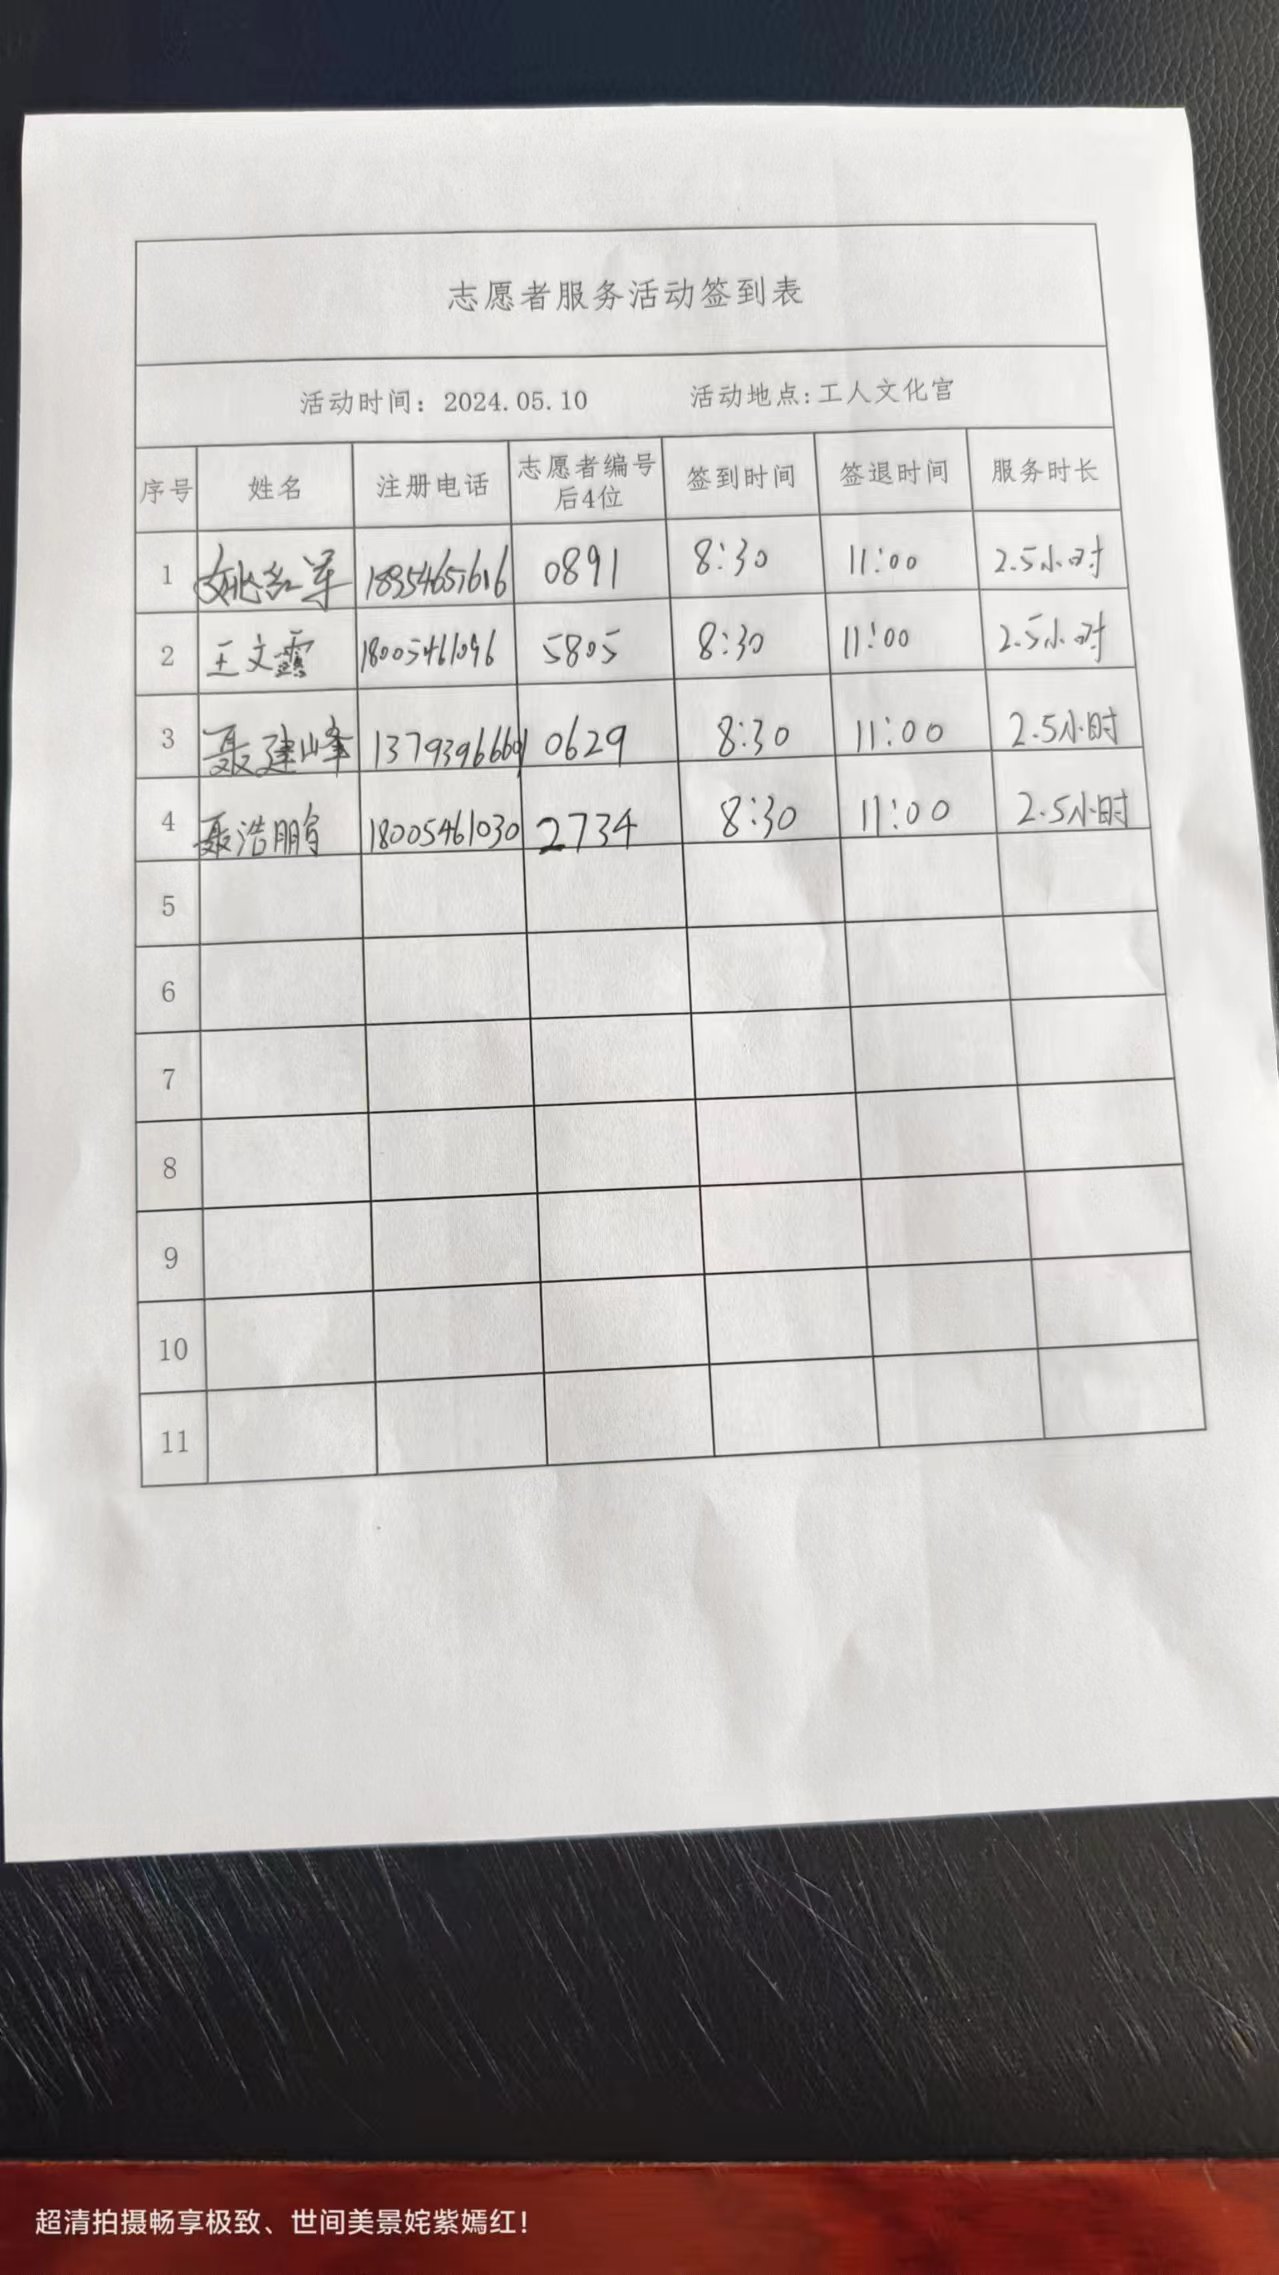 志愿者服务活动签到表
活动时间：2024.05.10 活动地点:工人文化宫
序号 姓名 注册电话 志愿者编号后4位 签到时间 签退时间 服务时长
1 姚红军 18954657616 0891 8:30 11:00 2.5小时
2 王文霞 18005461096 5805 8:30 11:00 2.5小时
3 聂建峰 0629 8:30 11:00 2.5小时
4 聂浩鹏 18005461030 2734 8:30 11:00 2.5小时
5
6
7
8
9
10
11
超清拍摄畅享极致、世间美景姹紫嫣红!